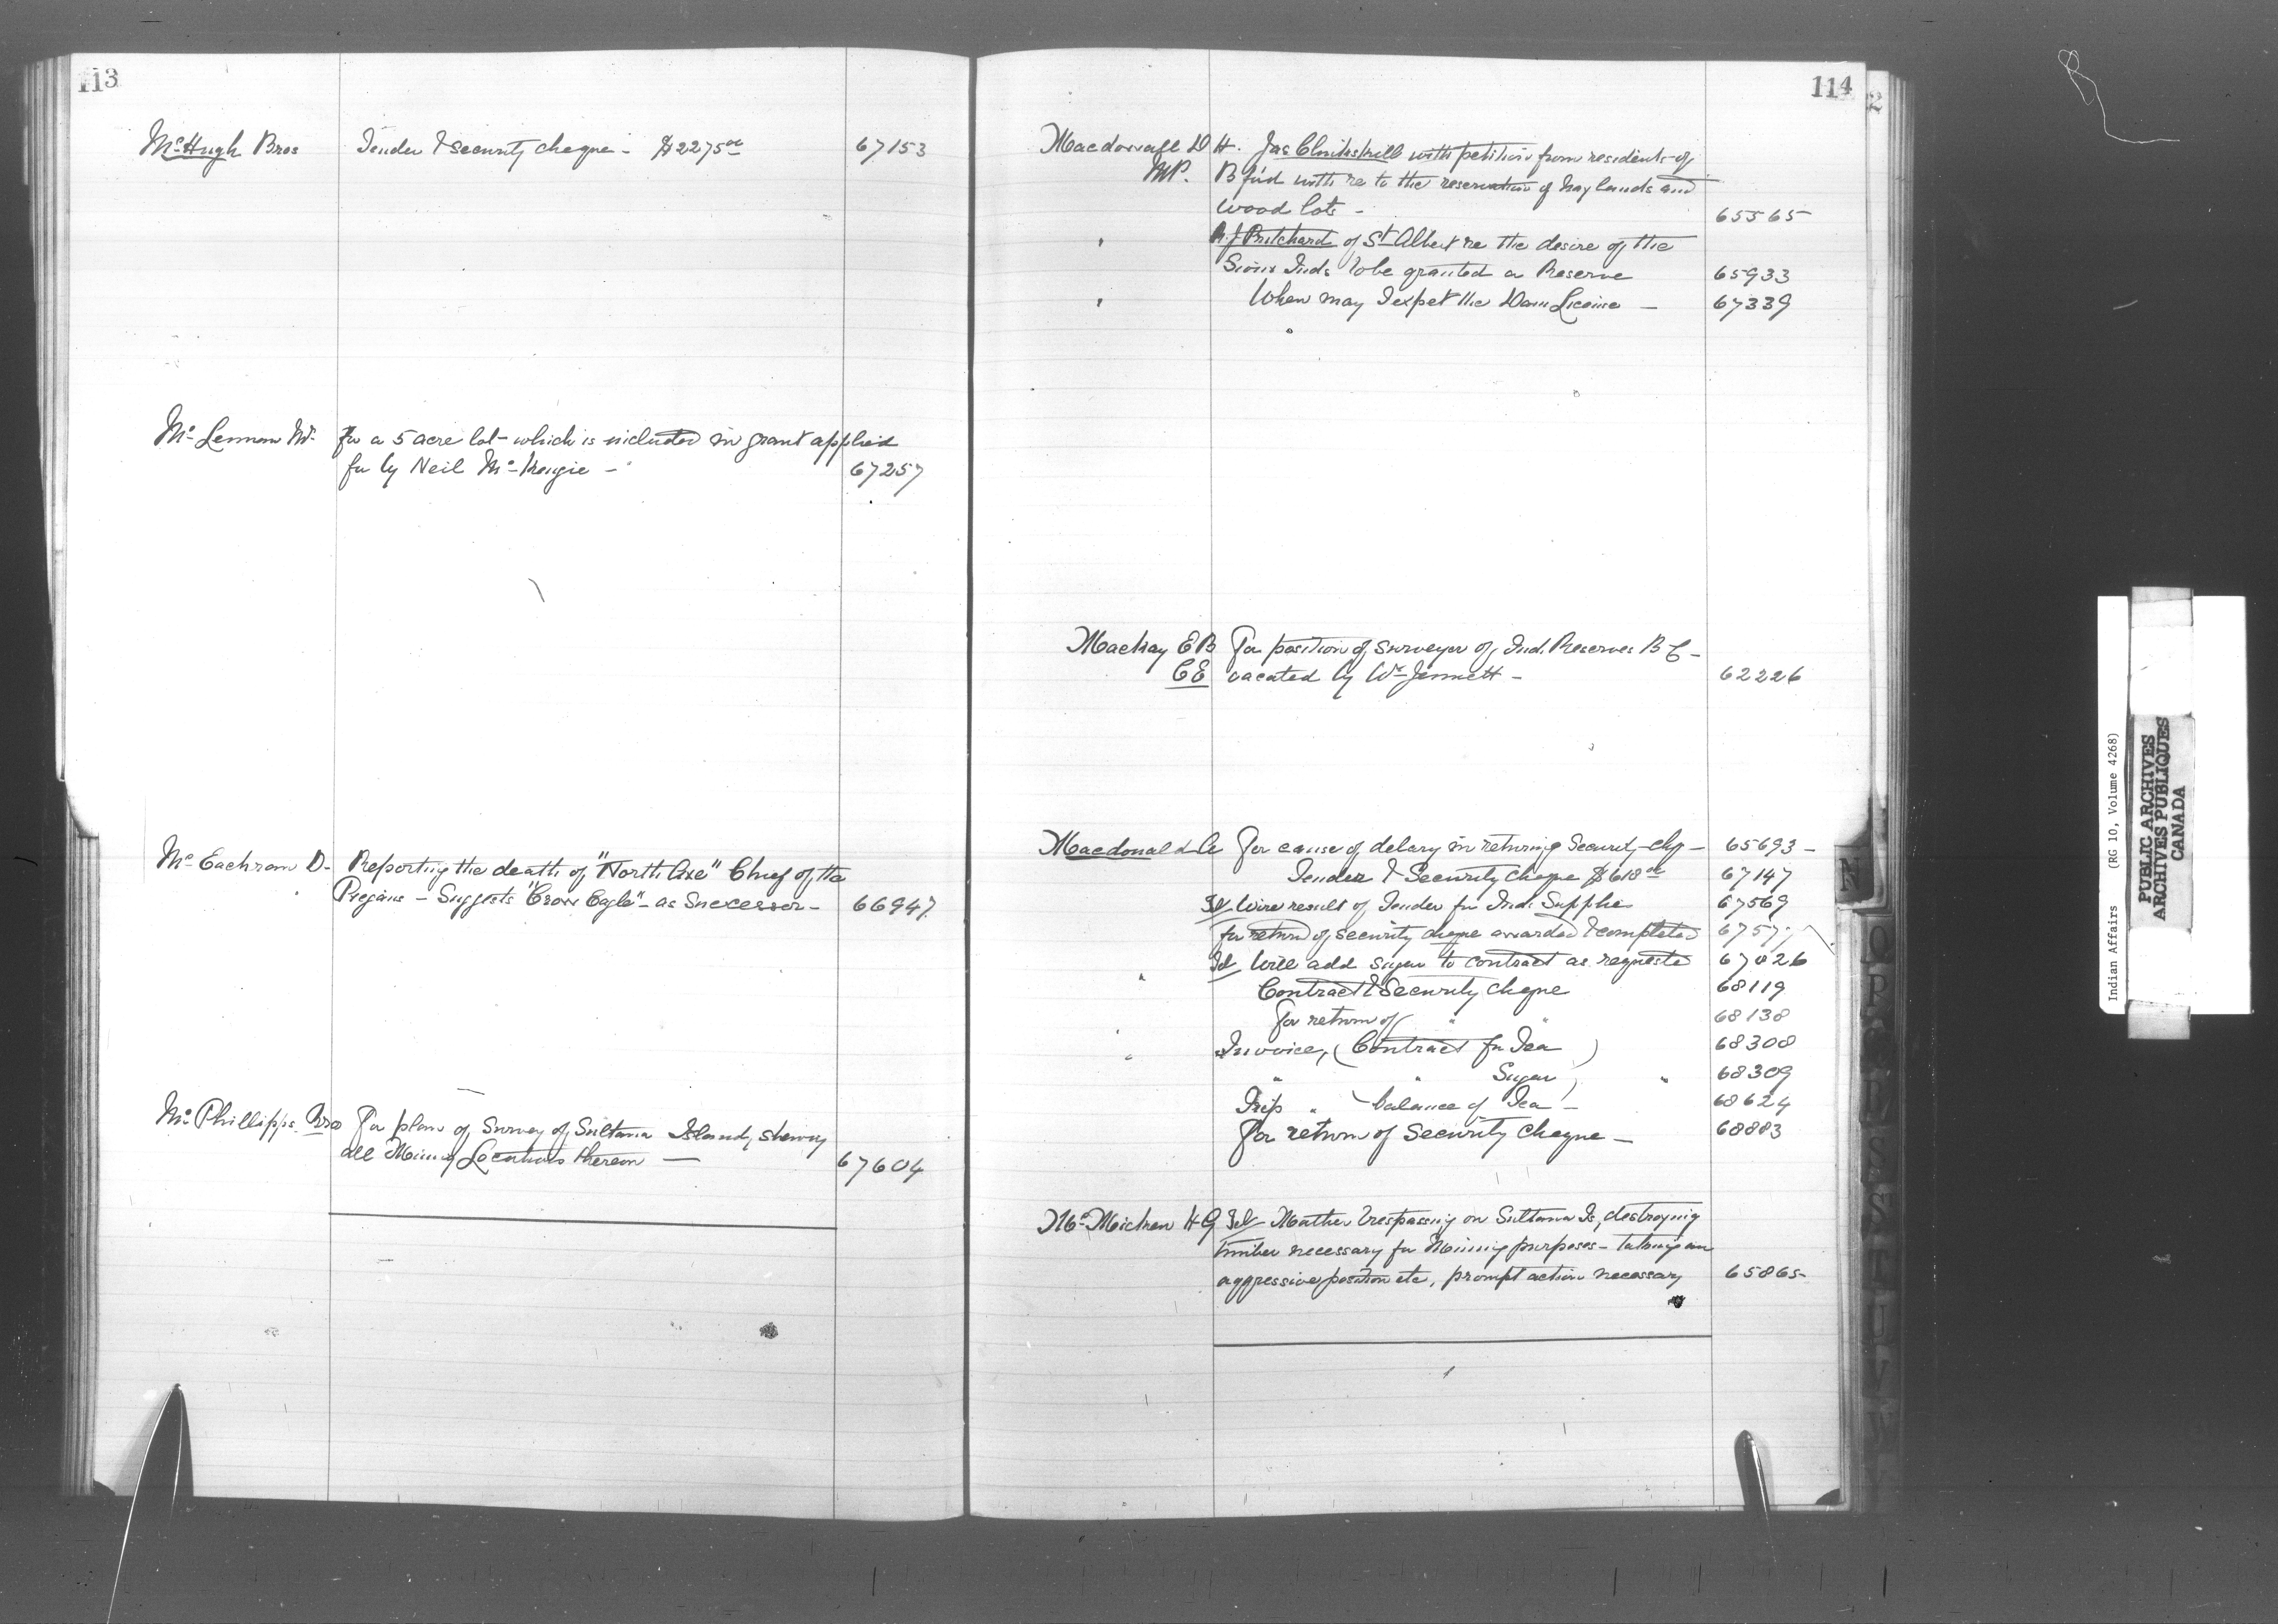 113
McHugh Bros Tender & Security cheque - $2275 00 67153
McLennan Wm For a 5 acre lot - which is included in grant applied
for by Neil McKenzie - 67257
McEachran D. Reporting the death of "North Axe" Chief of the
Piegans - Suggests "Crow Eagle" - as Successor - 66947
McPhillipps Bros For plan of Survey of Sultana Island, shewing
all Mining Locations thereon — 67604
114
Macdowall D H. Jas Clinkskill with petition from residents of
MP. B'ford with re to the reservation of hay lands and
wood lots - 65565
" Pritchard of St Albert re the desire of the
Sioux Inds to be granted a Reserve 65933
" When may I expet the Dam License — 67339
Mackay E B For position of Surveyor of Ind. Reserves B C -
CE vacated by Wm Jemmett - 62226
Macdonald A For cause of delay in returning Security chq - 65693 -
Tender & Security cheque $618 00 67147
Tel Wire result of Tender for Ind. Supplie 67569
for return of security cheque awarded & completed 6757
" Tel Will add sugar to contract as requested 67826
Contract & Security cheque 68119
For return of " " 68138
" Invoice, (Contract for Tea ) 68308
" " Sugar ) " 68309
Trip " (balance of Tea ) - 68624
For return of Security cheque - 68883
McMicken H G Tel Mather trespassing on Sultana Is, destroying
timber necessary for Mining purposes - taking an
aggressive position etc, prompt action necessary 65865
N
O
P
R
S
T
U
V
W
Indian Affairs (RG 10, Volume 4268)
PUBLIC ARCHIVES
ARCHIVES PUBLIQUES
CANADA